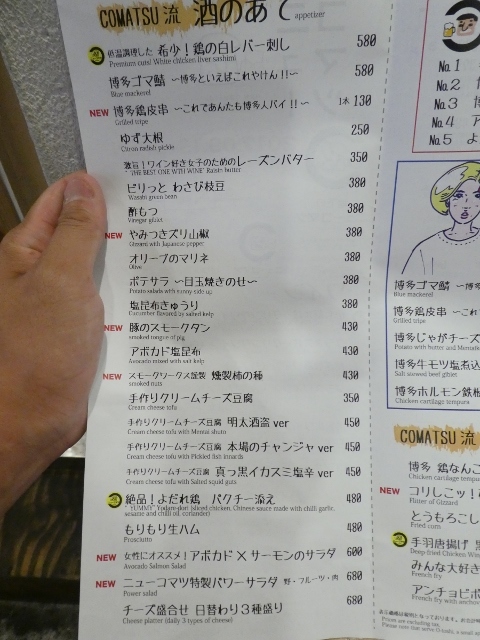 COMATSU流 酒のあて appetizer
低温調理した 希少！鶏の白レバー刺し 580
Premium cuts! White chicken liver sashimi
博多ゴマ鯖 〜博多といえばこれやけん!!〜 580
Blue mackerel
NEW 博多鶏皮串 〜これであんたも博多人バイ!!〜 1本 130
Grilled tripe
ゆず大根 250
Citron radish pickle
激旨！ワイン好き女子のためのレーズンバター 350
"THE BEST ONE WITH WINE" Raisin butter
ピリっと わさび枝豆 380
Wasabi green bean
酢もつ 380
Vinegar giblet
NEW やみつきズリ山椒 380
Gizzard with Japanese pepper
オリーブのマリネ 380
Olive
ポテサラ 〜目玉焼きのせ〜 380
Potato salads with sunny-side up
塩昆布きゅうり 380
Cucumber flavored by salted kelp
NEW 豚のスモークタン 430
smoked tongue of pig
アボカド塩昆布 430
Avocado mixed with salt kelp
NEW スモークワークス謹製 燻製柿の種 430
smoked nuts
手作りクリームチーズ豆腐 350
Cream cheese tofu
手作りクリームチーズ豆腐 明太酒盗 ver 450
Cream cheese tofu with Mentai shuto
手作りクリームチーズ豆腐 本場のチャンジャ ver 450
Cream cheese tofu with Pickled fish innards
手作りクリームチーズ豆腐 真っ黒イカスミ塩辛 ver 450
Cream cheese tofu with Salted squid guts
絶品！よだれ鶏 パクチー添え 480
"YUMMY" Yodare-dori (sliced chicken, Chinese sauce made with chilli garlic, sesame and chilli oil, coriander)
もりもり生ハム 480
Prosciutto
NEW 女性にオススメ！アボカド×サーモンのサラダ 600
Avocado Salmon Salad
NEW ニューコマツ特製パワーサラダ 野・フルーツ・肉 680
Power salad
チーズ盛合せ 日替わり3種盛り 680
Cheese platter (daily 3 types of cheese)
No.1
No.2
No.3
No.4
No.5
博多ゴマ鯖 〜博
Blue mackerel
博多鶏皮串 〜これ
Grilled tripe
博多じゃがチーズ
Potato with butter and
博多牛モツ塩煮込
Salt stewed beef giblet
博多ホルモン鉄板
Chicken cartilage tempura
COMATSU流
博多 鶏なんこ
Chicken cartilage tempura
NEW コリしこッ！
Fritter of Gizzard
とうもろこし
Fried corn
手羽唐揚げ
Deep-fried Chicken Win
みんな大好き
French fry
アンチョビポ
French fry with anchov
Prices are excluding tax.